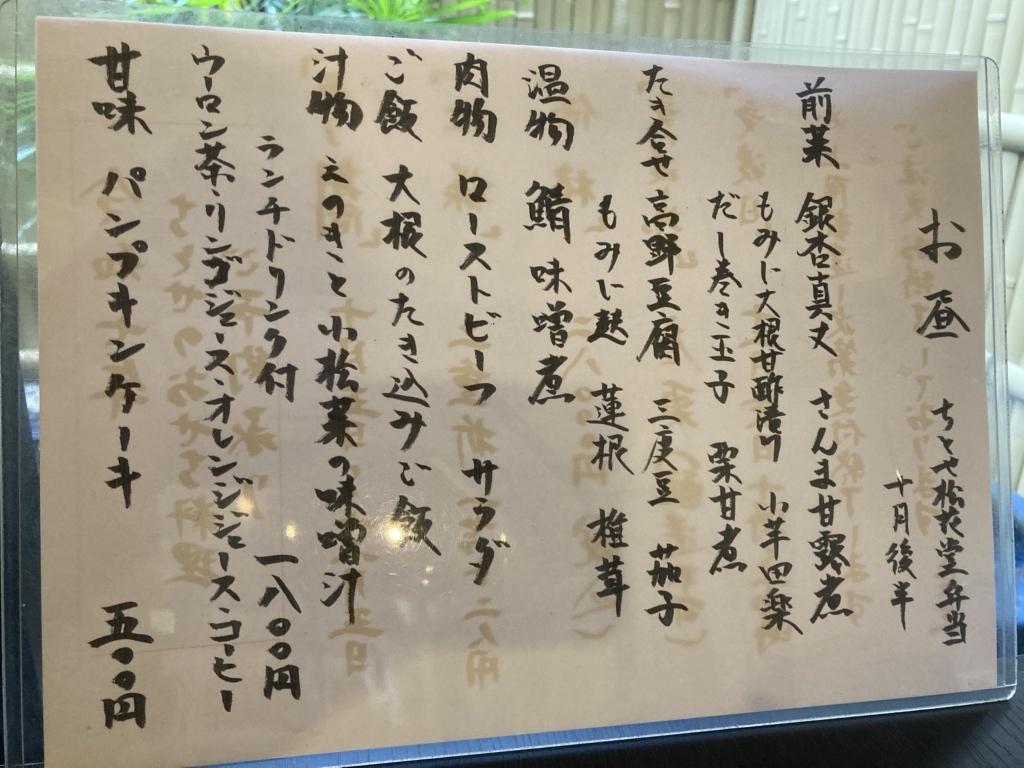 お昼 ちとせ松花堂弁当
十月後半
前菜 銀杏真丈 さんま甘露煮
もみじ大根甘酢漬け 小芋田楽
だし巻き玉子 栗甘煮
たき合せ 高野豆腐 三度豆 茄子
もみじ麸 蓮根 椎茸
温物 鯖味噌煮
肉物 ローストビーフ サラダ
ご飯 大根のたき込みご飯
汁物 えのきと小松菜の味噌汁
ランチドリンク付 一八〇〇円
ウーロン茶・リンゴジュース・オレンジジュース・コーヒー
甘味 パンプキンケーキ 五〇〇円